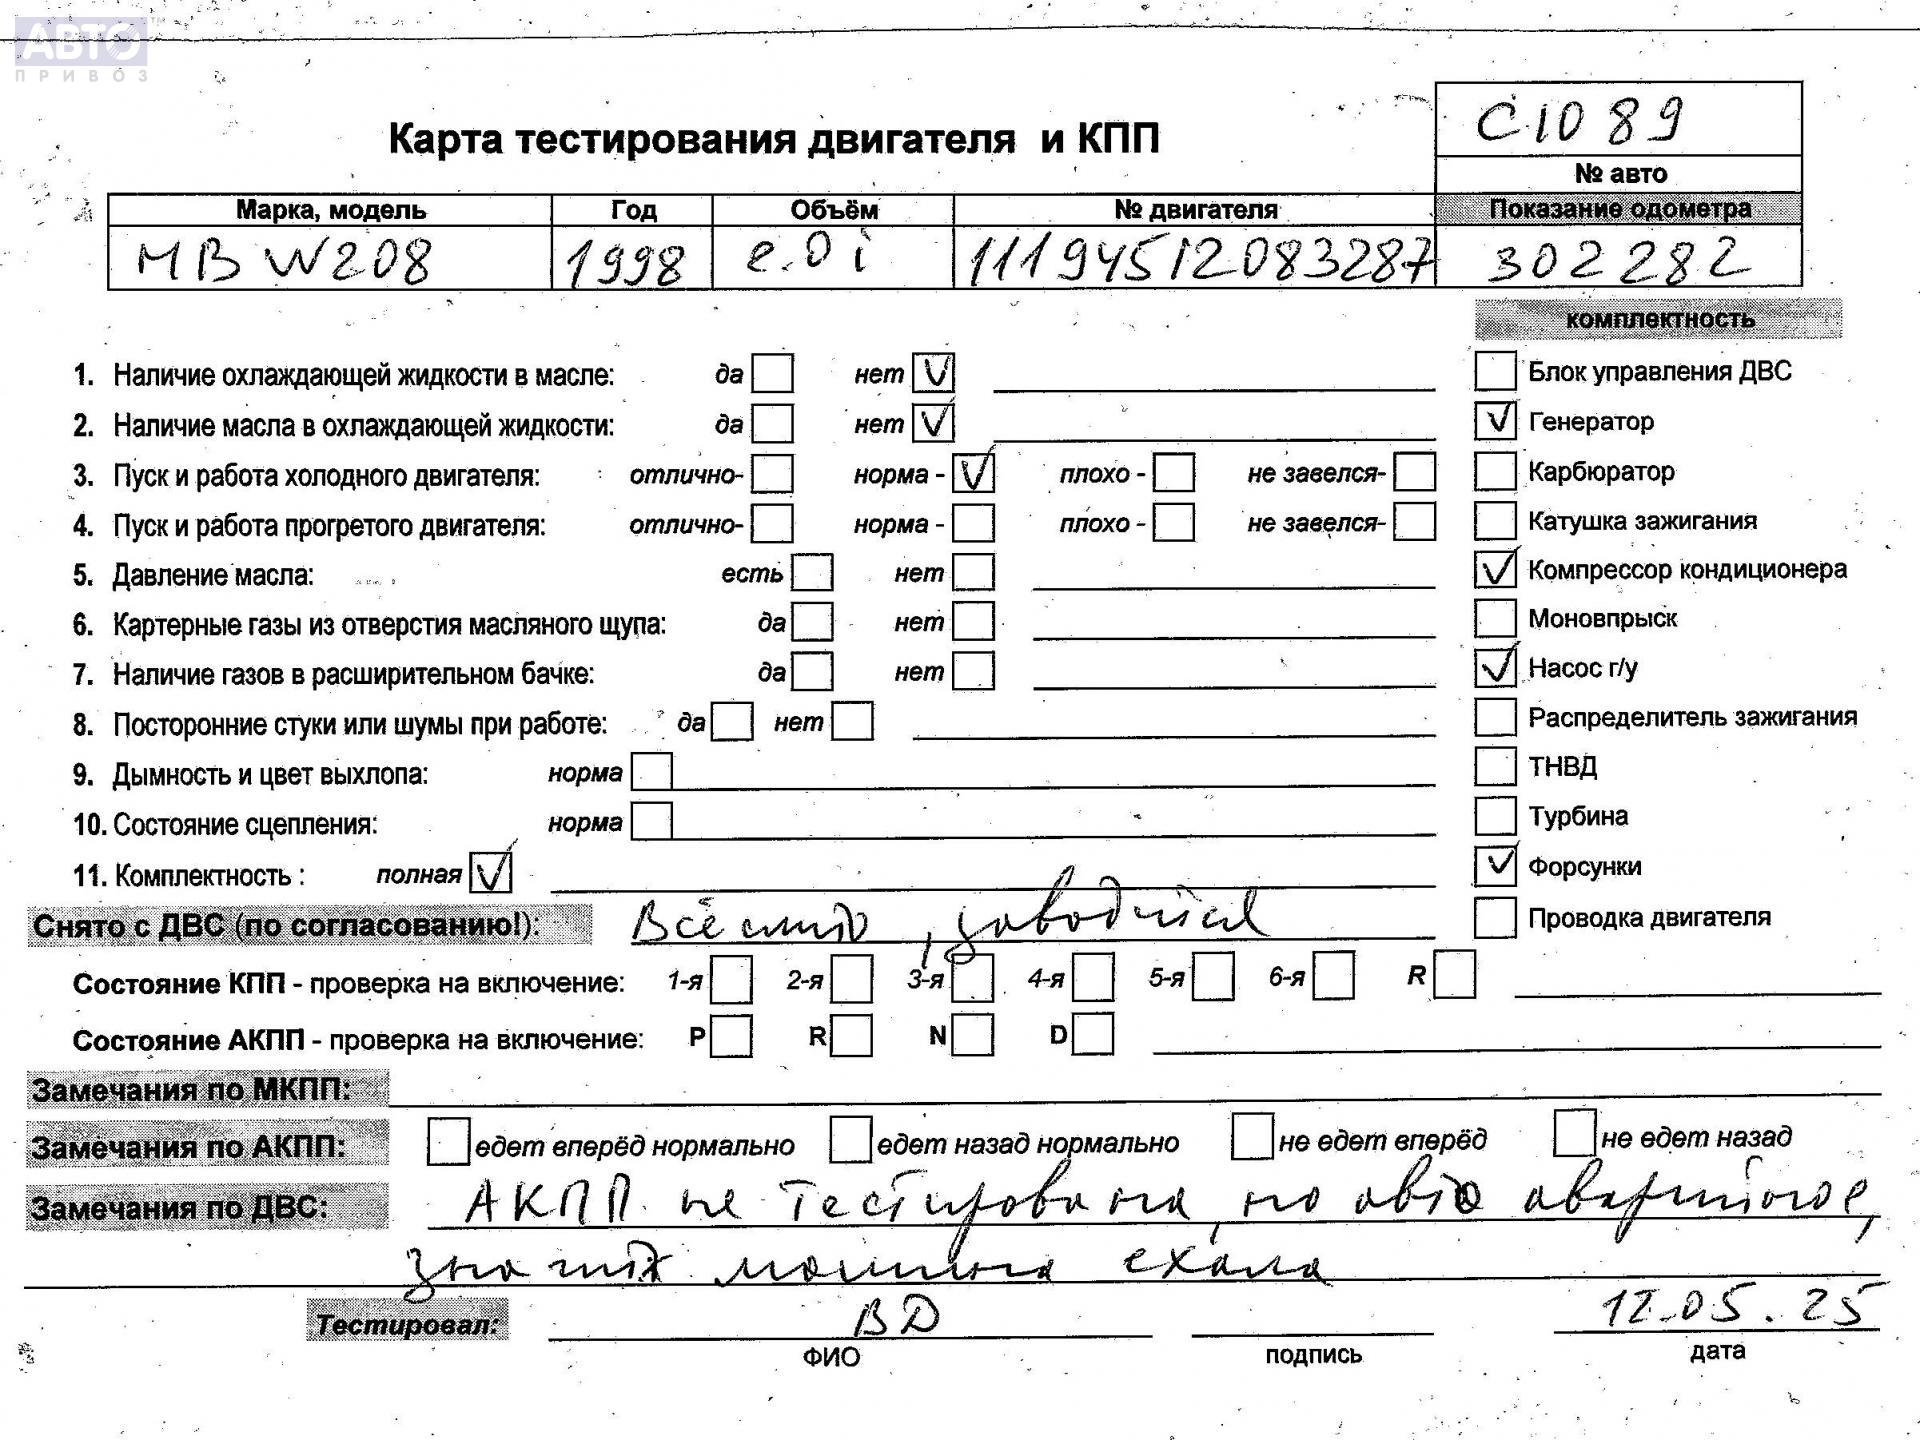 АВТО
ПРИВОЗ
С1089
Карта тестирования двигателя и КПП
№ авто
Марка, модель Год Объём № двигателя Показание одометра
MB W208 1998 2.0i 11194512083287 302282
комплектность
1. Наличие охлаждающей жидкости в масле: да нет V Блок управления ДВС
2. Наличие масла в охлаждающей жидкости: да нет V V Генератор
3. Пуск и работа холодного двигателя: отлично- норма - V плохо - не завелся- Карбюратор
4. Пуск и работа прогретого двигателя: отлично- норма - плохо - не завелся- Катушка зажигания
5. Давление масла: есть нет V Компрессор кондиционера
6. Картерные газы из отверстия масляного щупа: да нет Моновпрыск
7. Наличие газов в расширительном бачке: да нет V Насос г/у
8. Посторонние стуки или шумы при работе: да нет Распределитель зажигания
9. Дымность и цвет выхлопа: норма ТНВД
10. Состояние сцепления: норма Турбина
11. Комплектность : полная V V Форсунки
Снято с ДВС (по согласованию!): Всё , заводится Проводка двигателя
Состояние КПП - проверка на включение: 1-я 2-я 3-я 4-я 5-я 6-я R
Состояние АКПП - проверка на включение: P R N D
Замечания по МКПП:
Замечания по АКПП: едет вперёд нормально едет назад нормально не едет вперёд не едет назад
Замечания по ДВС: АКПП не тестирована, но авто аварийное,
значит машина ехала
Тестировал: ВД 12.05.25
ФИО подпись дата